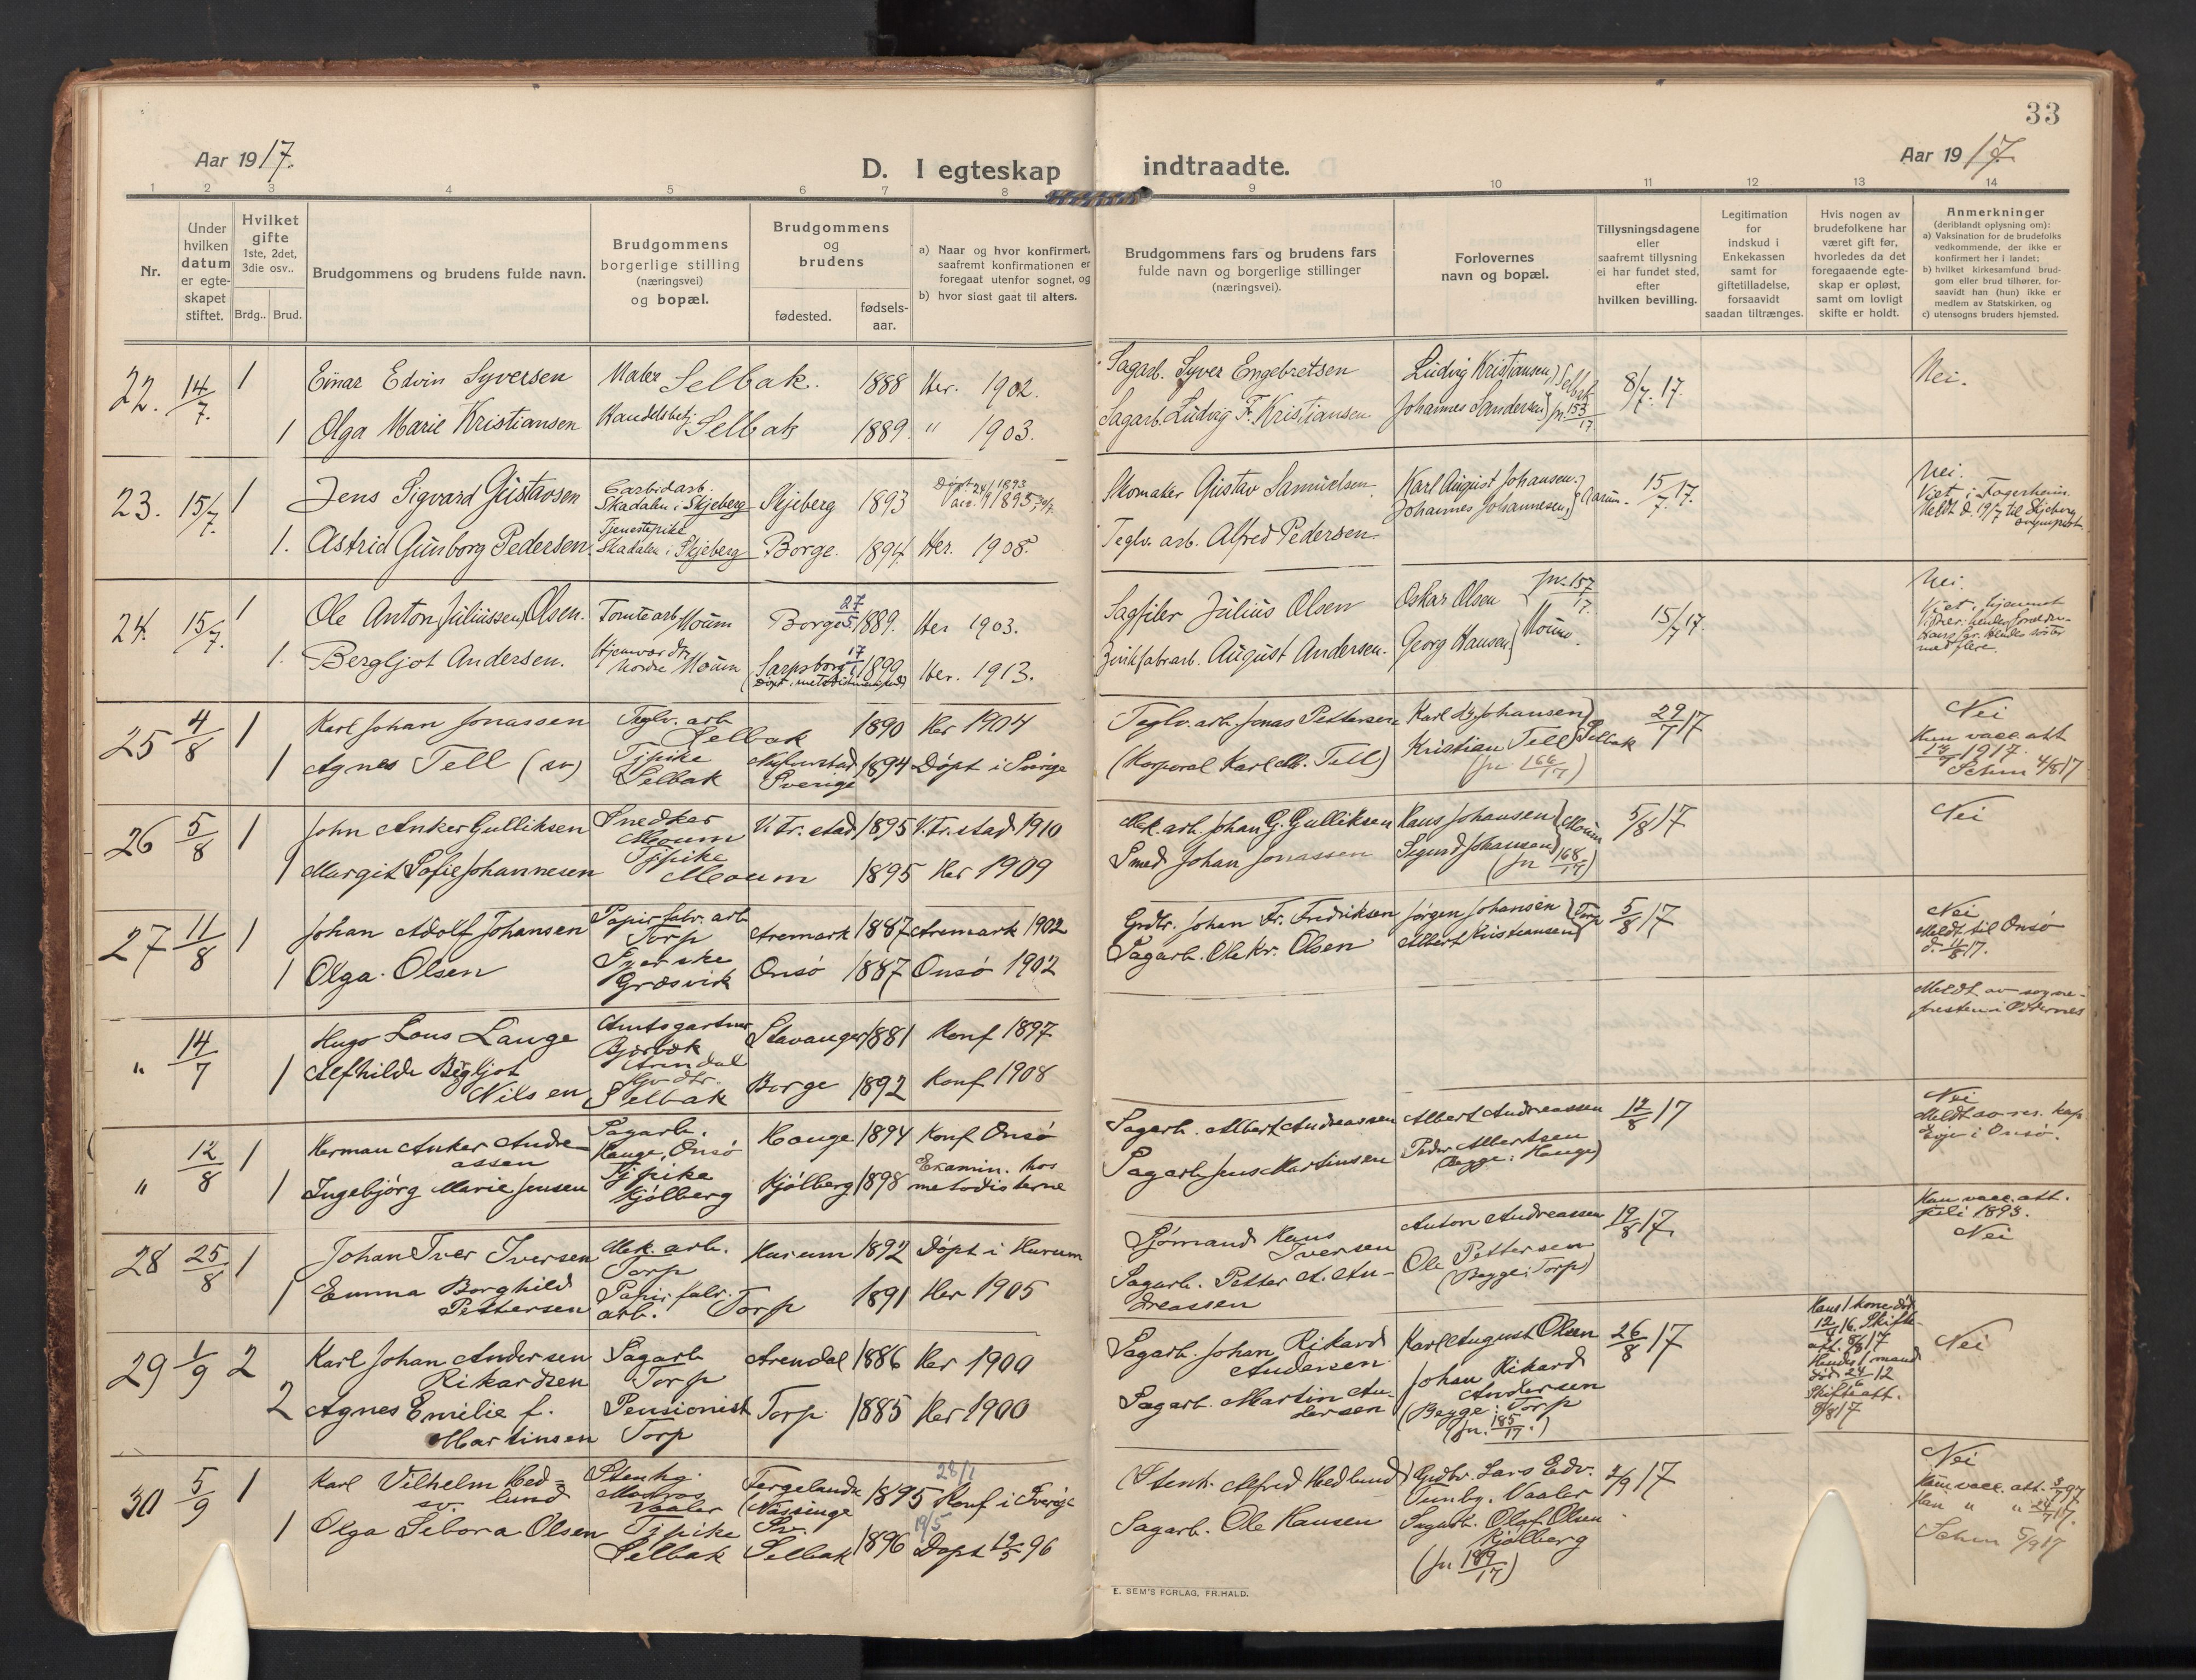 33
Aar 1917.
D. I egteskap
indtraadte.
Aar 1917.
1 2 3 4 5 6 7 8 9 10 11 12 13 14
Nr.
Under
hvilken
datum
er egte-
skapet
stiftet.
Hvilket
gifte
1ste, 2det,
3die osv..
Brdg.. Brud.
Brudgommens og brudens fulde navn.
Brudgommens
borgerlige stilling
(næringsvei)
og bopæl.
Brudgommens
og
brudens
fødested.
fødsels-
aar.
a) Naar og hvor konfirmert,
saafremt konfirmationen er
foregaat utenfor sognet, og
b) hvor sidst gaat til alters.
Brudgommens fars og brudens fars
fulde navn og borgerlige stillinger
(næringsvei).
Forlovernes
navn og bopæl.
Tillysningsdagene
eller
saafremt tillysning
ei har fundet sted,
efter
hvilken bevilling.
Legitimation
for
indskud i
Enkekassen
samt for
giftetilladelse,
forsaavidt
saadan tiltrænges.
Hvis nogen av
brudefolkene har
været gift før,
hvorledes da det
foregaaende egte-
skap er opløst,
samt om lovligt
skifte er holdt.
Anmerkninger
(deriblandt oplysning om):
a) Vaksination for de brudefolks
vedkommende, der ikke er
konfirmert her i landet;
b) hvilket kirkesamfund brud-
gom eller brud tilhører, for-
saavidt han (hun) ikke er
medlem av Statskirken, og
c) utensogns bruders hjemsted.
22. 14/7. 1 Einar Edvin Syversen Maler Selbak. 1888 Her. 1902. Sagarb. Syver Engebretsen Ludvig Kristiansen, Selbak 8/7. 17. Nei.
1 Olga Marie Kristiansen Handelsbetj. Selbak 1889. " 1903. Sagarb. Ludvig F. Kristiansen Johannes Sandersen jn. 153/17
23. 15/7. 1 Jens Sigvard Gustavsen Carbidarb. Skadalen i Skjeberg Skjeberg 1893 Skomaker Gustav Samuelsen. Karl August Johansen. 15/7. 17. Nei.
Viet i Fagerheim.
Meldt d. 19/7 til Skjeberg
1. Astrid Gunborg Pedersen Tjenestepike Skadalen i Skjeberg Borge. 1894. Her. 1908. Teglv. arb. Alfred Pedersen. Johannes Johannesen,
24. 15/7. 1 Ole Anton Juliussen, Olsen. Tomtearb. Moum Borge 27/5 1889. Her 1903. Sagfiler Julius Olsen Oskar Olsen jn. 157/17. 15/7 17. Nei.
1. Bergljot Andersen. Hjemvær. dtr. nordre Moum Sarpsborg 17/1 1899 Her. 1913. Zinkfabrarb. August Andersen. Georg Hansen Moum.
25 4/8 1 Karl Johan Jonassen Teglv. arb Selbak 1890 Her 1904 Teglv. arb. Jonas Pettersen Karl Johansen 29/7 17 Nei
1 Agnes Tell (sv) Tjpike Selbak Sverige 1894 Døpt i Sverige (Korporal Karl M. Tell) Kristian Tell Selbak (jn 166/17) Hun vacc. att
1917.
Schm 4/8 17
26 5/8 1 John Anker Gulliksen Snedker Moum V. Fr. stad 1895 V. Fr. stad 1910 Mek. arb. Johan G. Gulliksen Hans Johansen Moum 5/8 17 Nei
1 Margit Sofie Johannesen Tjpike Moum 1895 Her 1909 Smed Johan Jonassen Sigurd Johansen (jn 168/17)
27 11/8 1 Johan Adolf Johansen Papirfabr. arb Torp Aremark 1887 Aremark 1902 Grdbr. Johan Fr. Fredriksen Jørgen Johansen Torp 5/8 17 Nei
Meldt til Onsø
d. 11/8 17.
1 Olga Olsen Syerske Græsvik Onsø 1887 Onsø 1902 Sagarb. Ole Kr. Olsen Albert Kristiansen
" 14/7 Hugo Lous Lange Amtsgartner Bjørbæk Arendal Stavanger 1881 Konf 1897 Meldt av sogne-
presten i
1 Alfhilde Bergljot Nilsen Selbak Borge 1892 Konf 1908
" 12/8 1 Herman Anker Andre-
assen Sagarb. Hauge, Onsø Hauge 1894 Konf Onsø Sagarb. Albert Andreassen Albert Andreassen 12/8 17 Nei
Meldt av res. kap
i Onsø.
1 Ingebjörg Marie Jensen Tjpike Kjölberg Kjölberg 1898 Examin. hos metodisterne Sagarb Jens Martinsen Peder Albertsen (Begge: Hauge)
28 25/8 1 Johan Iver Iversen Mek. arb. Torp Hurum 1892 Døpt i Hurum Sjømand Hans Iversen Anton Andreassen 19/8 17. Han vacc. att.
juli 1893.
Nei
1 Emma Borghild Pettersen Papirfabr. arb. Torp 1891 Her 1905 Sagarb. Petter A. An-
dreassen Ole Pettersen (Begge: Torp)
29 1/9 2 Karl Johan Andersen Rikardsen Sagarb Torp Arendal 1886 Her 1900 Sagarb. Johan Rikard Andersen Karl August Olsen 26/8 17 Hans 1 kone død
12/4 16. Skifte-
att. 8/8 17
Hendes 1 mand
død 24/6 12
Skifteatt.
8/8 17 Nei
2 Agnes Emilie f. Martinsen Pensionist Torp Torp 1885 Her 1900 Sagarb. Martin An-
dersen Johan Rikard Andersen (Begge: Torp (jn. 185/17.)
30 5/9 1 Karl Vilhelm Hed-
lund sv. Stenhg. Mosros Vaaler Fergelanda (Nössinge Sv. 28/2 1895 Konf i Sverige (Stenh. Alfred Hedlund) Grdbr. Lars Edv. Tunby. Vaaler 2/9 17 Nei
1 Olga Sebora Olsen Tjpike Selbak Selbak 19/5 1896 Døpt 12/5 96 Sagarb. Ole Hansen Sagarb. Olaf Olsen Kjølberg (jn 189/17) Schm 5/9 17
E. SEM'S FORLAG, FR.HALD.